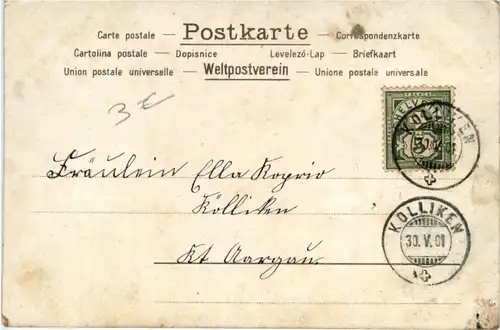 Carte postale — Postkarte — Correspondenzkarte
Cartolina postale — Dopisnice Levelező-Lap — Briefkaart
Union postale universelle — Weltpostverein — Unione postale universale
3 €
HELVETIA
KÖLLIKEN
Fräulein Ella Koprio
Kölliken
Kt Aargau.
KÖLLIKEN
30.V.01